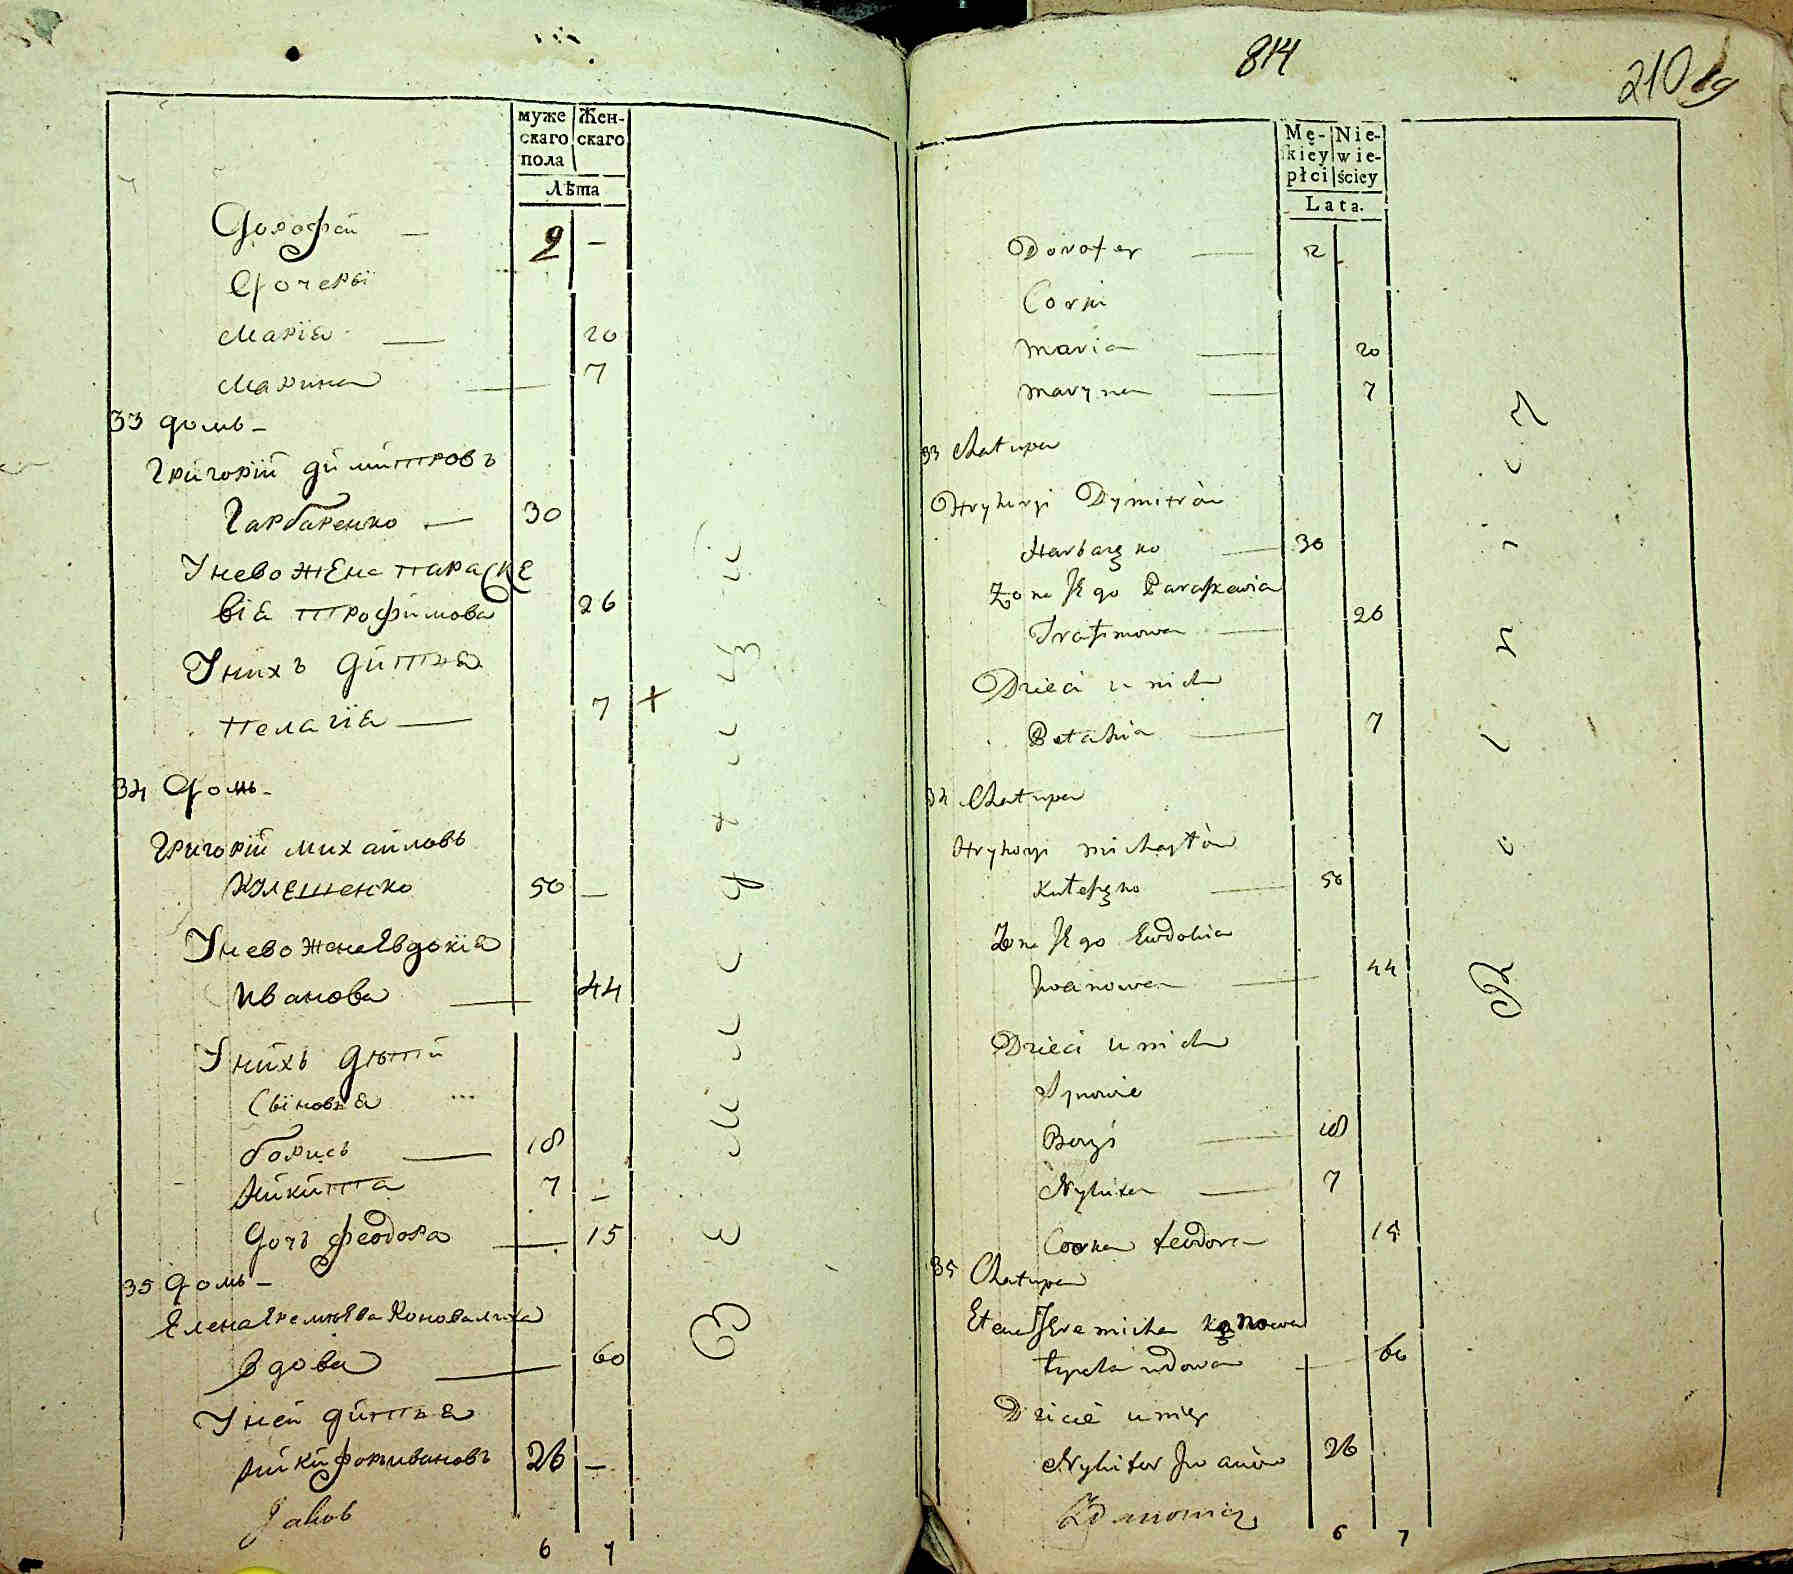 муже Жен-
скаго скаго
пола
Лѣта
Дорофей — 2 —
Дочеры
Марїа — 20
Марина — 7
33 домъ –
Григорїй Димитровъ
Гарбаренко — 30
У нево жена параске
вїа Трофимова 26
У нихъ дитьа
Пелагїа — 7 +
34 Домъ –
Григорїй михайловъ
Кулешенко 50 —
У нево жена Евдокїа
Иванова — 44
У нихъ дѣтй
Сыновьа
борисъ — 18
Никита 7 –
Дочъ феодора — 15
35 домъ –
Елена Еремѣева Коновалиха
вдова — 60
У ней дитьа
Никифоръ ивановъ 26 –
Jakob
6 7
814
210
Mę- Nie-
kiey wie-
płci ściey
Lata.
Dorofey — 2
Corki
Maria — 20
Maryna — 7
33 Chatupa
Hryhoryi Dymitrów
Harbarę ko — 30
Zona Jego Paraskewia
Trafimowa — 26
Dzieci u nich
Petahia — 7
34 Chatupa
Hryhoryi michaytów
Kuteszęko — 50
Zona Jego Ewdokia
Jwanowa — 44
Dzieci u nich
Synowie
Borys — 18
Nykita — 7
Corka teodora 15
35 Chatupa
Etena Jeremicha Konowa
typcha wdowa — 60
Dziecie u niey
Nykifor Jwanów 26
Zdanowicz
6 7